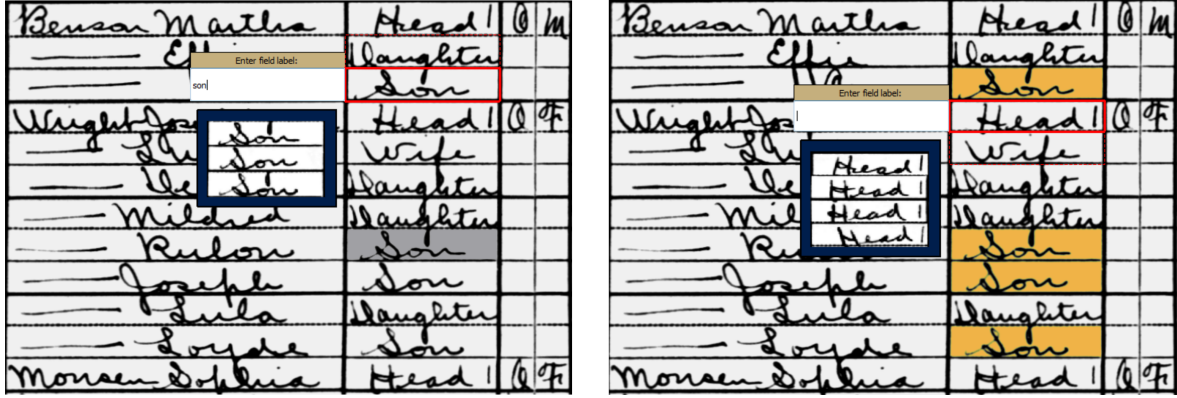 Benson Martha Head 1 O M
Daughter
Enter field label:
son
Son
Head 1 O F
Son
Son
Son
Wife
Daughter
Mildred Daughter
Rulon Son
Joseph Son
Lula Daughter
Loyde Son
Monsen Sophia Head 1 O F
Benson Martha Head 1 O M
Effie Daughter
Son
Enter field label:
Head 1 O F
Head 1
Head 1
Head 1
Head 1
Wife
Daughter
Daughter
Son
Joseph Son
Lula Daughter
Loyde Son
Monsen Sophia Head 1 O F